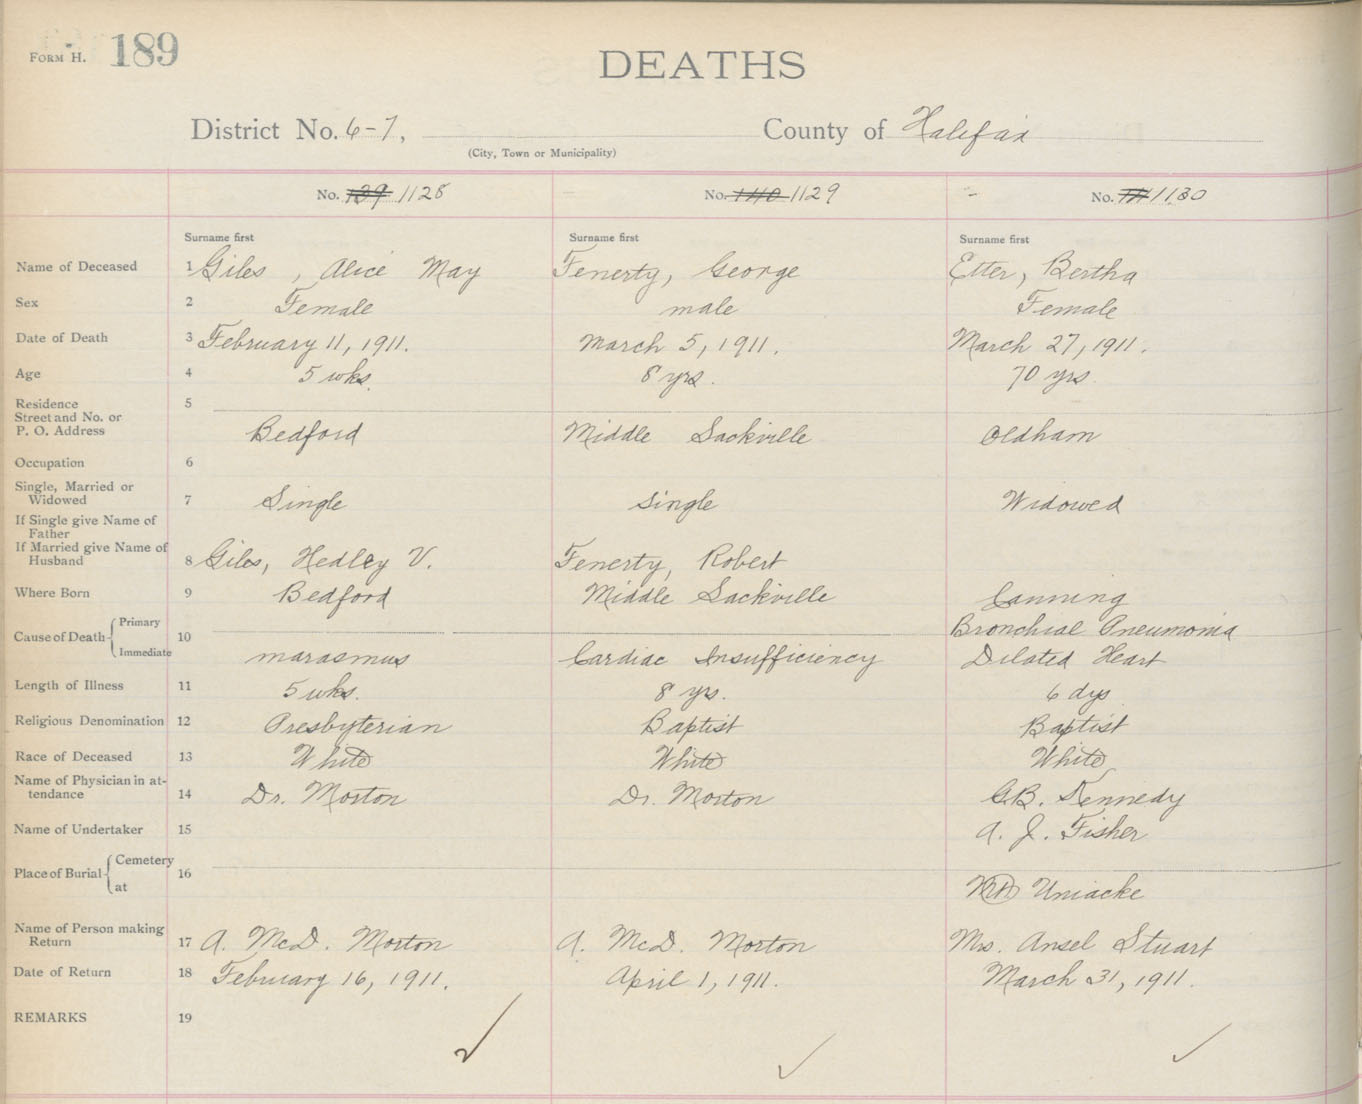 FORM H. 189
DEATHS
District No. 6-7, County of Halifax
(City, Town or Municipality)
No. 139 1128 No. 1140 1129 No. 1130
Surname first Surname first Surname first
Name of Deceased 1 Giles, Alice May Fenerty, George Etter, Bertha
Sex 2 Female male Female
Date of Death 3 February 11, 1911. March 5, 1911. March 27, 1911.
Age 4 5 wks. 8 yrs. 70 yrs.
Residence 5
Street and No. or
P. O. Address Bedford Middle Sackville Oldham
Occupation 6
Single, Married or
Widowed 7 Single Single Widowed
If Single give Name of
Father
If Married give Name of
Husband 8 Giles, Hedley V. Fenerty, Robert
Where Born 9 Bedford Middle Sackville Canning
Cause of Death Primary 10 Bronchial Pneumonia
Immediate marasmus Cardiac Insufficiency Dilated Heart
Length of Illness 11 5 wks. 8 yrs. 6 dys
Religious Denomination 12 Presbyterian Baptist Baptist
Race of Deceased 13 White White White
Name of Physician in at-
tendance 14 Dr. Morton Dr. Morton G.B. Kennedy
Name of Undertaker 15 A. J. Fisher
Place of Burial Cemetery 16
at Uniacke
Name of Person making
Return 17 A. McD. Morton A. McD. Morton Mrs. Ansel Stuart
Date of Return 18 February 16, 1911. April 1, 1911. March 31, 1911.
REMARKS 19